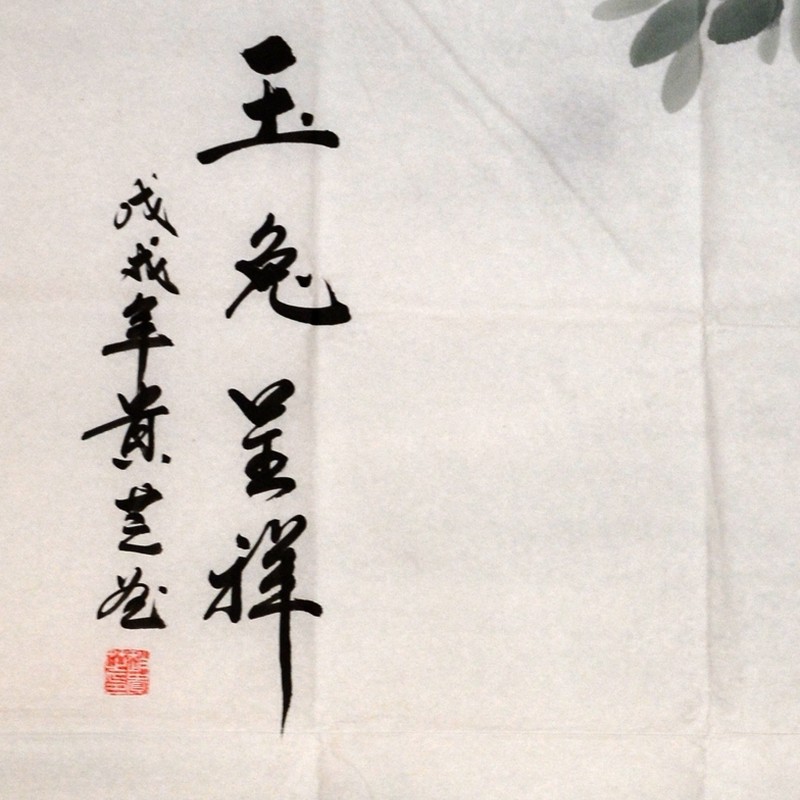 玉兔呈祥
戊戌年黄芝